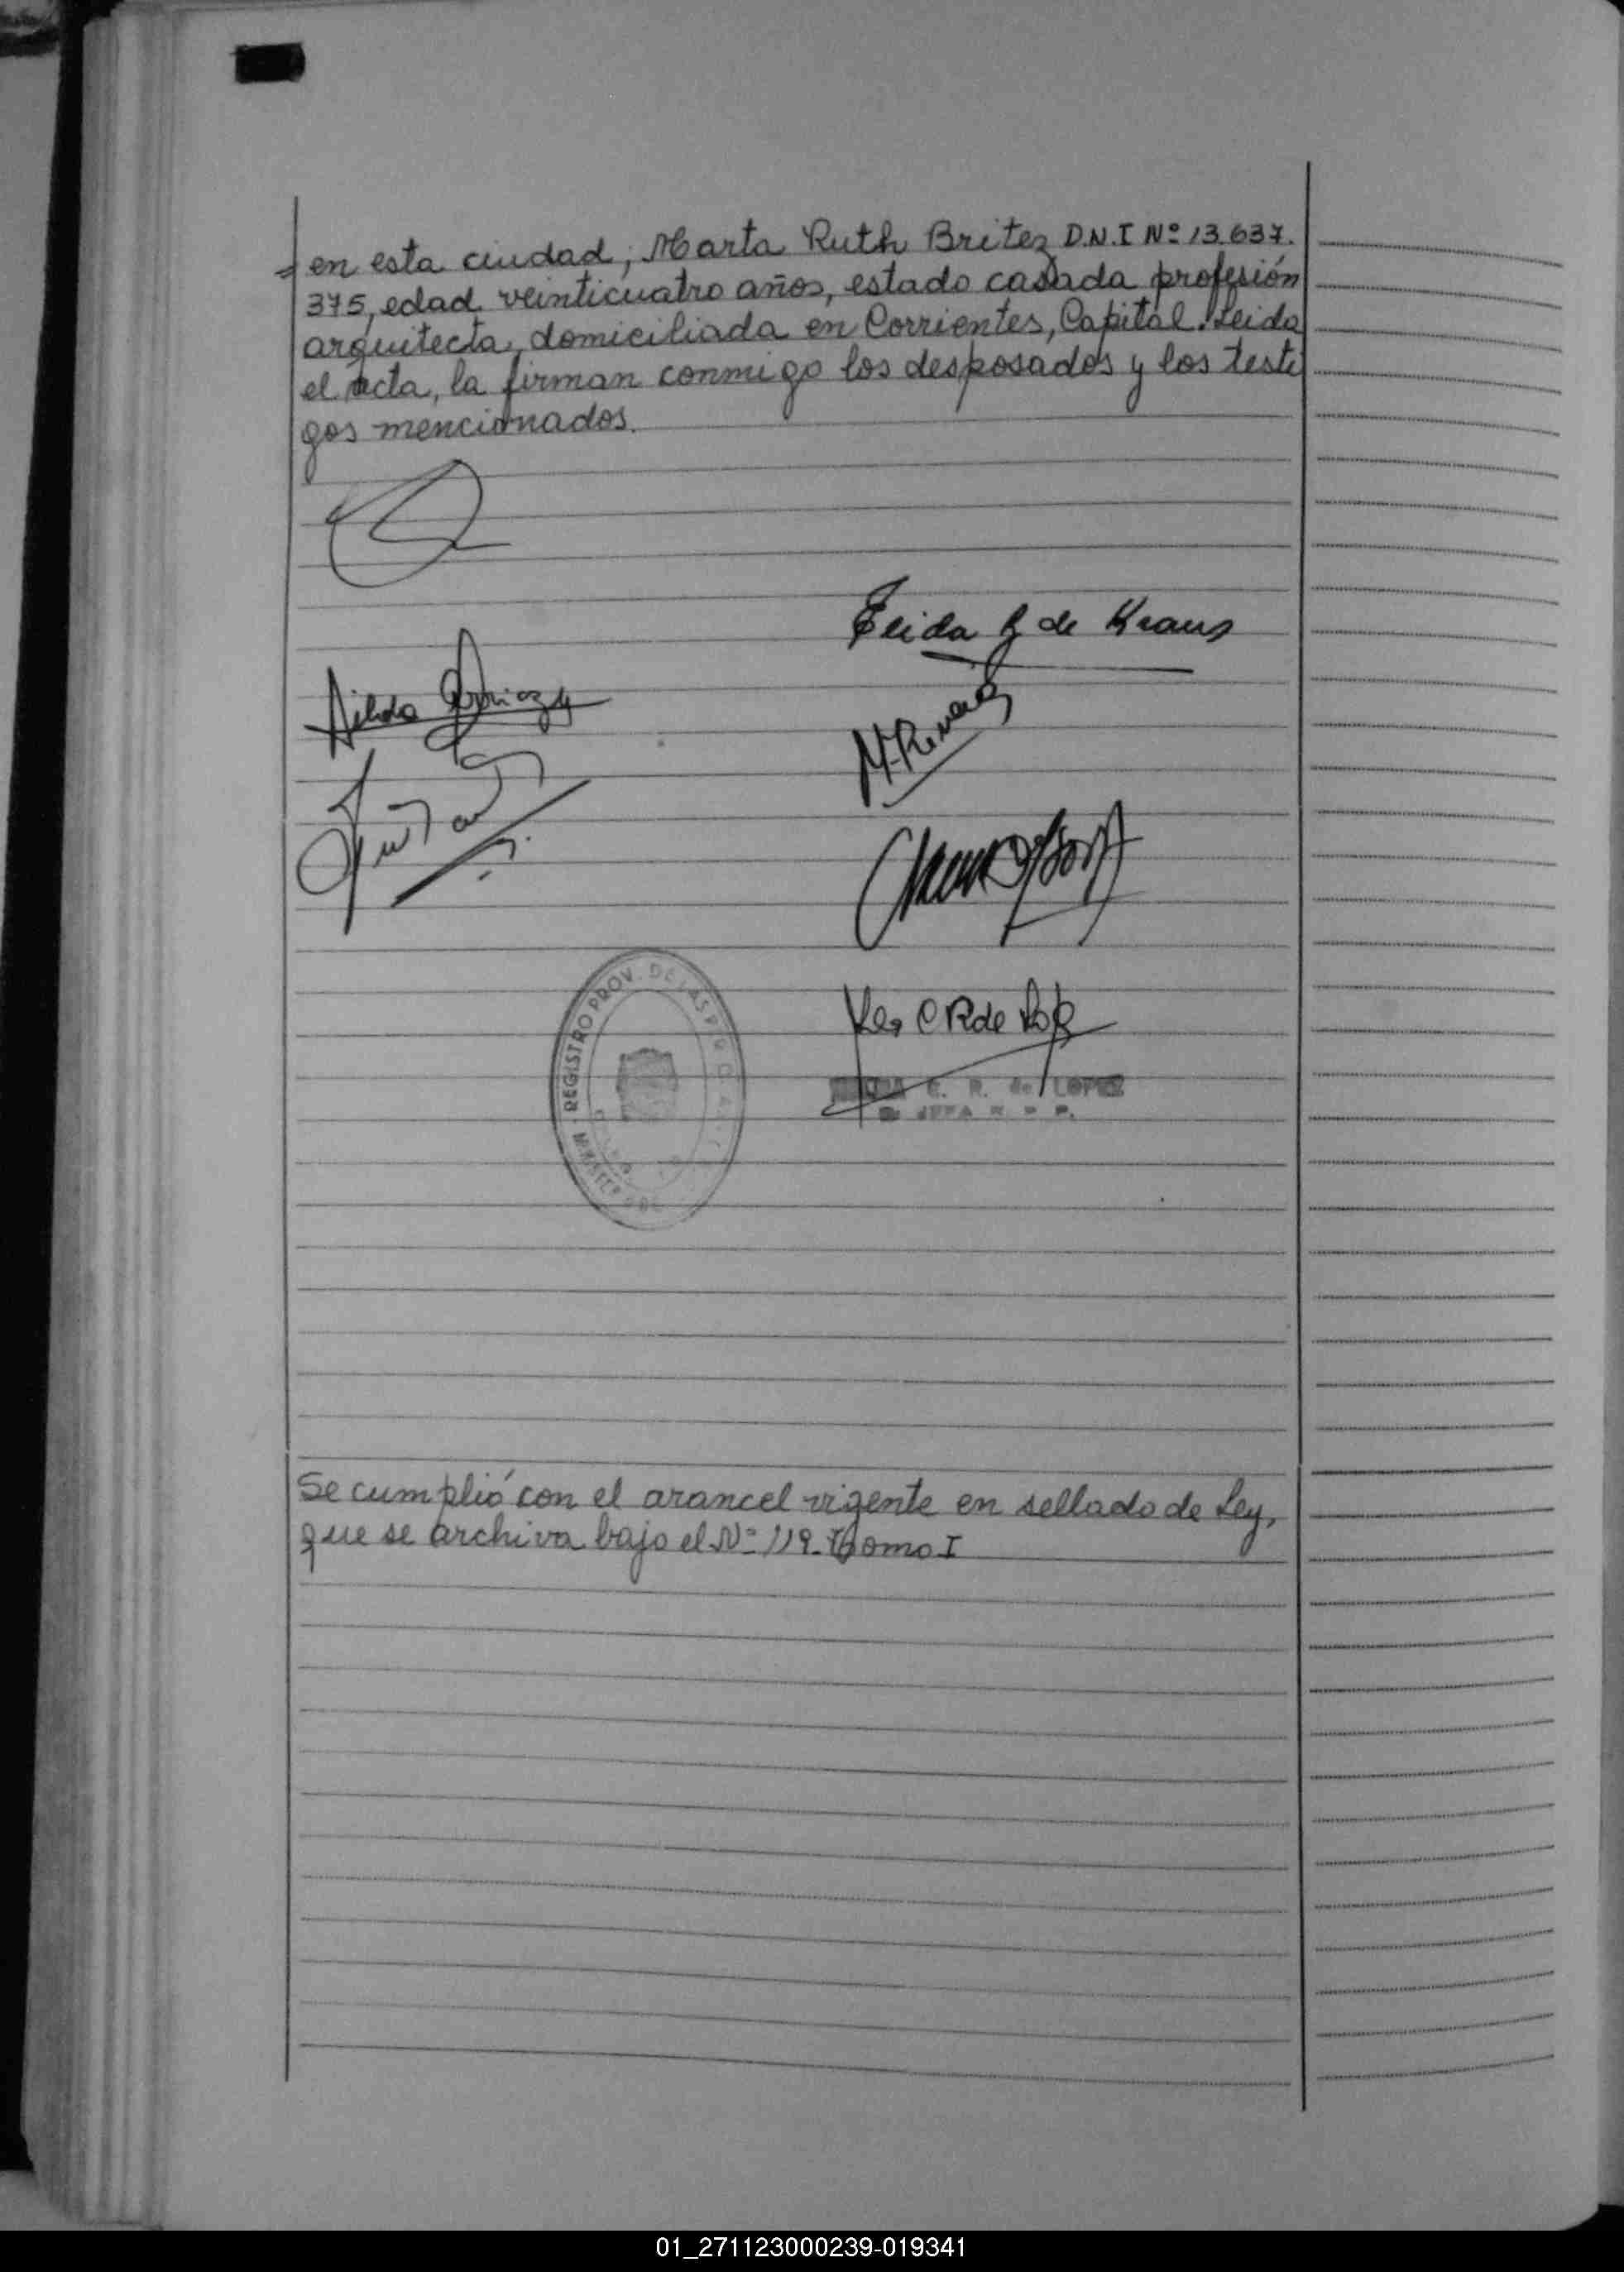 = en esta ciudad; Marta Ruth Britez D.N.I Nº 13.637.
375, edad veinticuatro años, estado casada profesión
arquitecta, domiciliada en Corrientes, Capital. Leida
el acta, la firman conmigo los desposados y los testi
gos mencionados.
Elida G de Kraus
REGISTRO PROV. DE LAS P
E. R. de LOPEZ
JEFA R P P.
Se cumplió con el arancel vigente en sellado de Ley,
que se archiva bajo el Nº 119- Tomo I
01_271123000239-019341